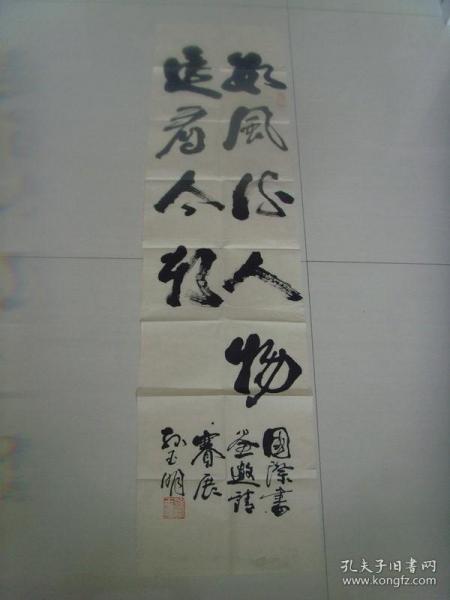 数風流人物
還看今朝
國際書
畫邀請
賽展
孙玉明
孔夫子旧书网
www.kongfz.com